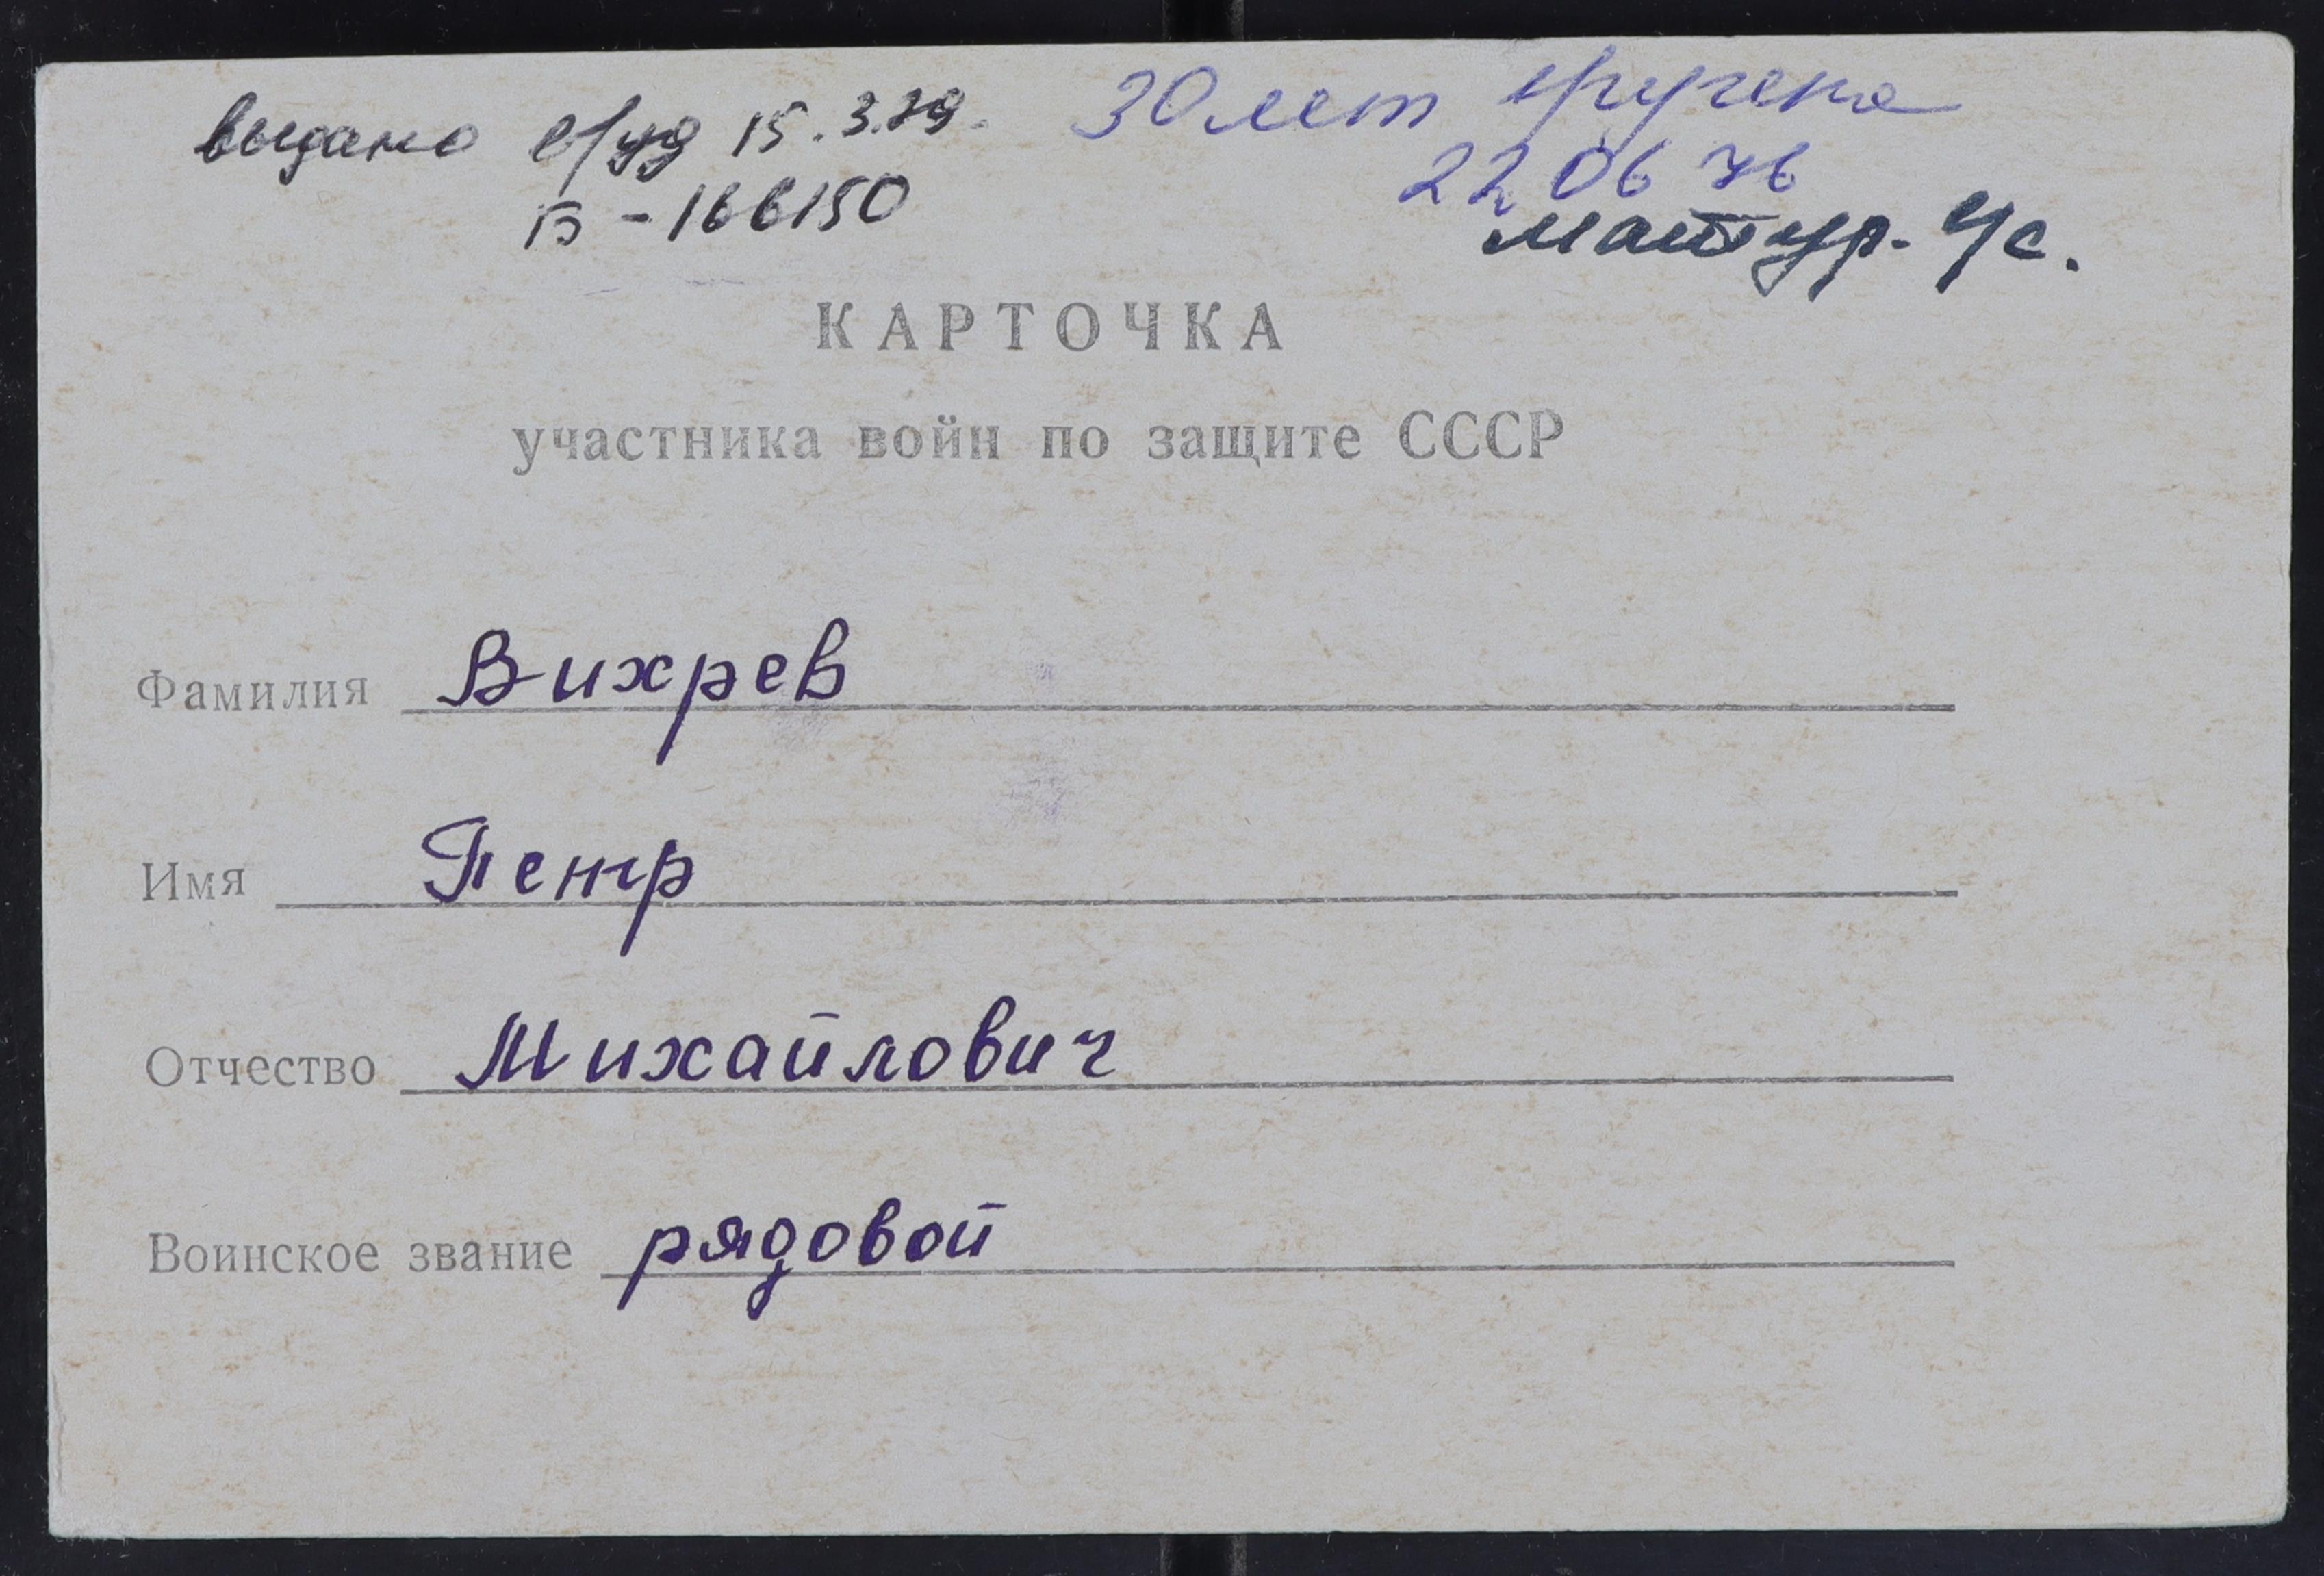 выдано с/уд 15.3.79. 30 лет вручена
Б-166150 22 06 76
Матур. Ус.
КАРТОЧКА
участника войн по защите СССР
Фамилия Вихрев
Имя Петр
Отчество Михайлович
Воинское звание рядовой